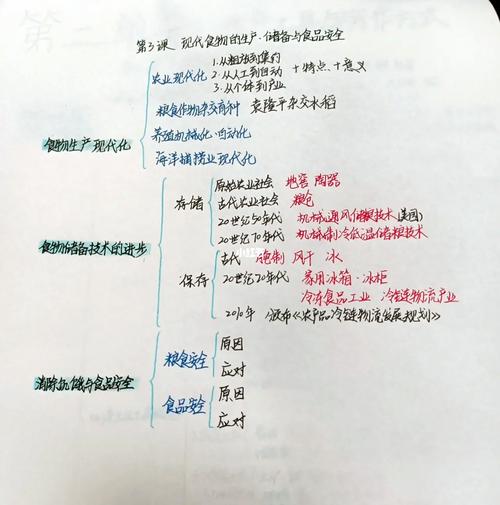 第3课 现代食物的生产、储备与食品安全
食物生产现代化
农业现代化
1.从粗放到集约
2.从人工到自动
3.从个体到产业
+特点、+意义
粮食作物杂交育种 袁隆平杂交水稻
养殖机械化、自动化
海洋捕捞业现代化
食物储备技术的进步
存储
原始农业社会 地窖 陶器
古代农业社会 粮仓
20世纪50年代 机械通风储粮技术(美国)
20世纪70年代 机械制冷低温储粮技术
保存
古代 腌制 风干 冰
20世纪20年代 家用冰箱·冰柜
冷冻食品工业 冷链物流产业
2010年 颁布《农产品冷链物流发展规划》
消除饥饿与食品安全
粮食安全
原因
应对
食品安全
原因
应对
小红书